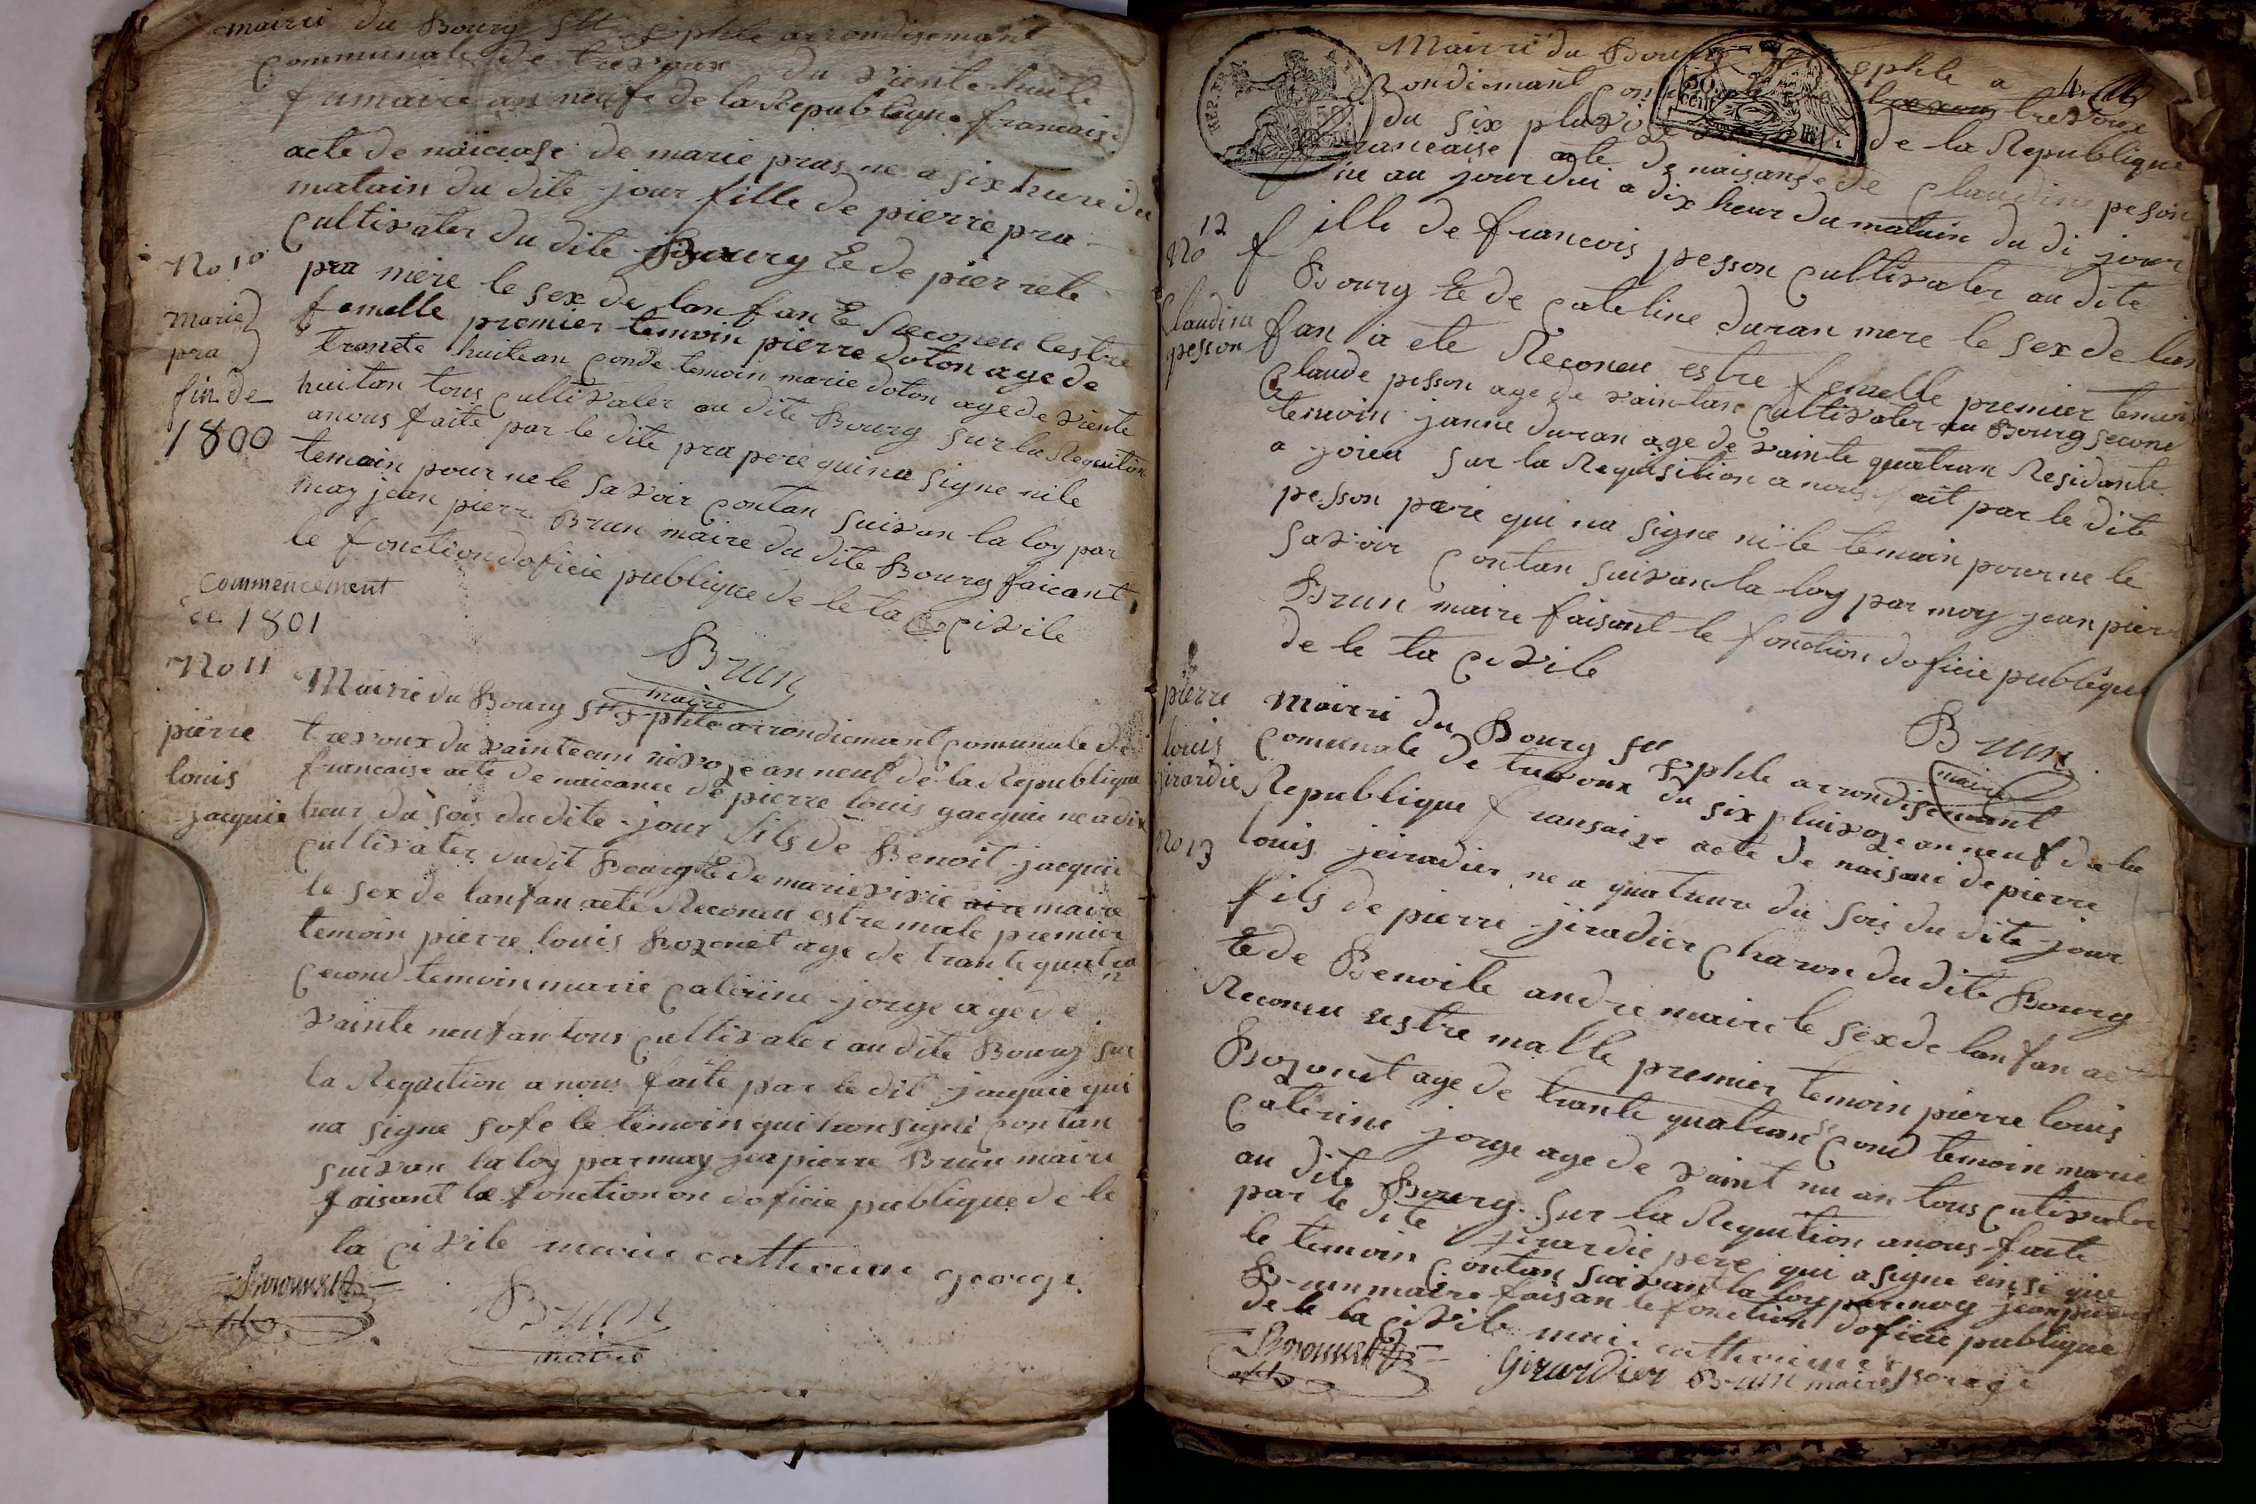 mairie du Bourg St Ciphle arrondisemant
Communale de trevoux du viente huite
frimaire an neufe de la Republique francaise
acte de naicase de marie pras ne a six heure du
matain du dite jour fille de pierre pra
cultivater du dite Bourg Et de pierrete
pra mere le sex de lanfan Et Reconeu lestre
femelle premier temoin pierre doton age de
trante huite an conde temoin marie doton age de viente
huitan tous cultivater au dite Bourg sur la Requition
a nous faite par le dite pra pere qui na signe ni le
temoin pour ne le savoir contan suivan la loy par
moy jean pierre Brun maire du dite Bourg faicant
le fonction doficie publique de le ta civile
Brun
maire
No 10
marie
pra
fin de
1800
Commencement
de 1801
No 11
pierre
louis
jacquie
Mairie du Bourg St Ciphle arrondicmant comunale de
trevoux du vainte eun nivoze an neuf de la Republique
francaise acte de naicance de pierre louis jacquie ne a dix
heur du sois du dite jour fils de Benoit jacquie
cultivater dudit Bourg Et de marie vivie maire
le sex de lanfan aete Reconeu estre male premier
temoin pierre louis Bozonet age de trante quatra
n
cecond temoin marie caterine jorge age de
vainte neufan tous cultivater au dite Bourg sur
la Requition a nous faite par le dit jaquie qui
na signe sofe le temoin qui hon signe contan
suivan la loy par moy jea pierre Brun maire
faisant le fonction on doficie publique de le
ta civile marie catherine george
Bozonnet
Brun
maire
4
Mairie du Bourg St Ciphle a
Rondicmant trevoux
du six pluvioze de la Republique
francaise acte de naisanse de Claudine peson
ne au jourdui a dix heur du matain du di jour
fille de francois pesson cultivater au dite
Bourg Et de cateline duran mere le sex de lan
fan a ete Reconeu estre femelle premier temoin
Claude pesson age de vaintan cultivater au Bourg secone
temoin janne duran age de vainte quatran Residante
a joieu sur la Requisition a nous fait par le dite
pesson paere qui na signe ni le temoin pour ne le
savoir contan suivan la loy par moy jean pierr
Brun maire faisant le fonction doficie publique
de le ta civile
Brun
maire
12
No
Claudine
pesson
pierre
louis
jirardie
No 13
Mairie du Bourg St Ciphle arrondisemant
comunale de trevoux du six pluivoze an neuf de la
Republique fransaize acte de naisanc de pierre
louis jeiradier ne a quatreure du sois du dite jour
fils de pierre jiradier charon du dite Bourg
te de Benoite andre maire le sex de lanfan ae
Reconeu estre malle premier temoin pierre louis
Bozonet age de trante quatran second temoin marie
caterine jorge age de vaint nu an tous cutivater
au dite Bourg sur la Requition a nous faite
par le dite jirardie pere qui a signe einsi que
le temoin contan suivant la loy par moy jean pierre
Brun maire faisan le fonction doficie publique
de le ta civile marie catherine george
Bozonnet
Girardier
Brun maire